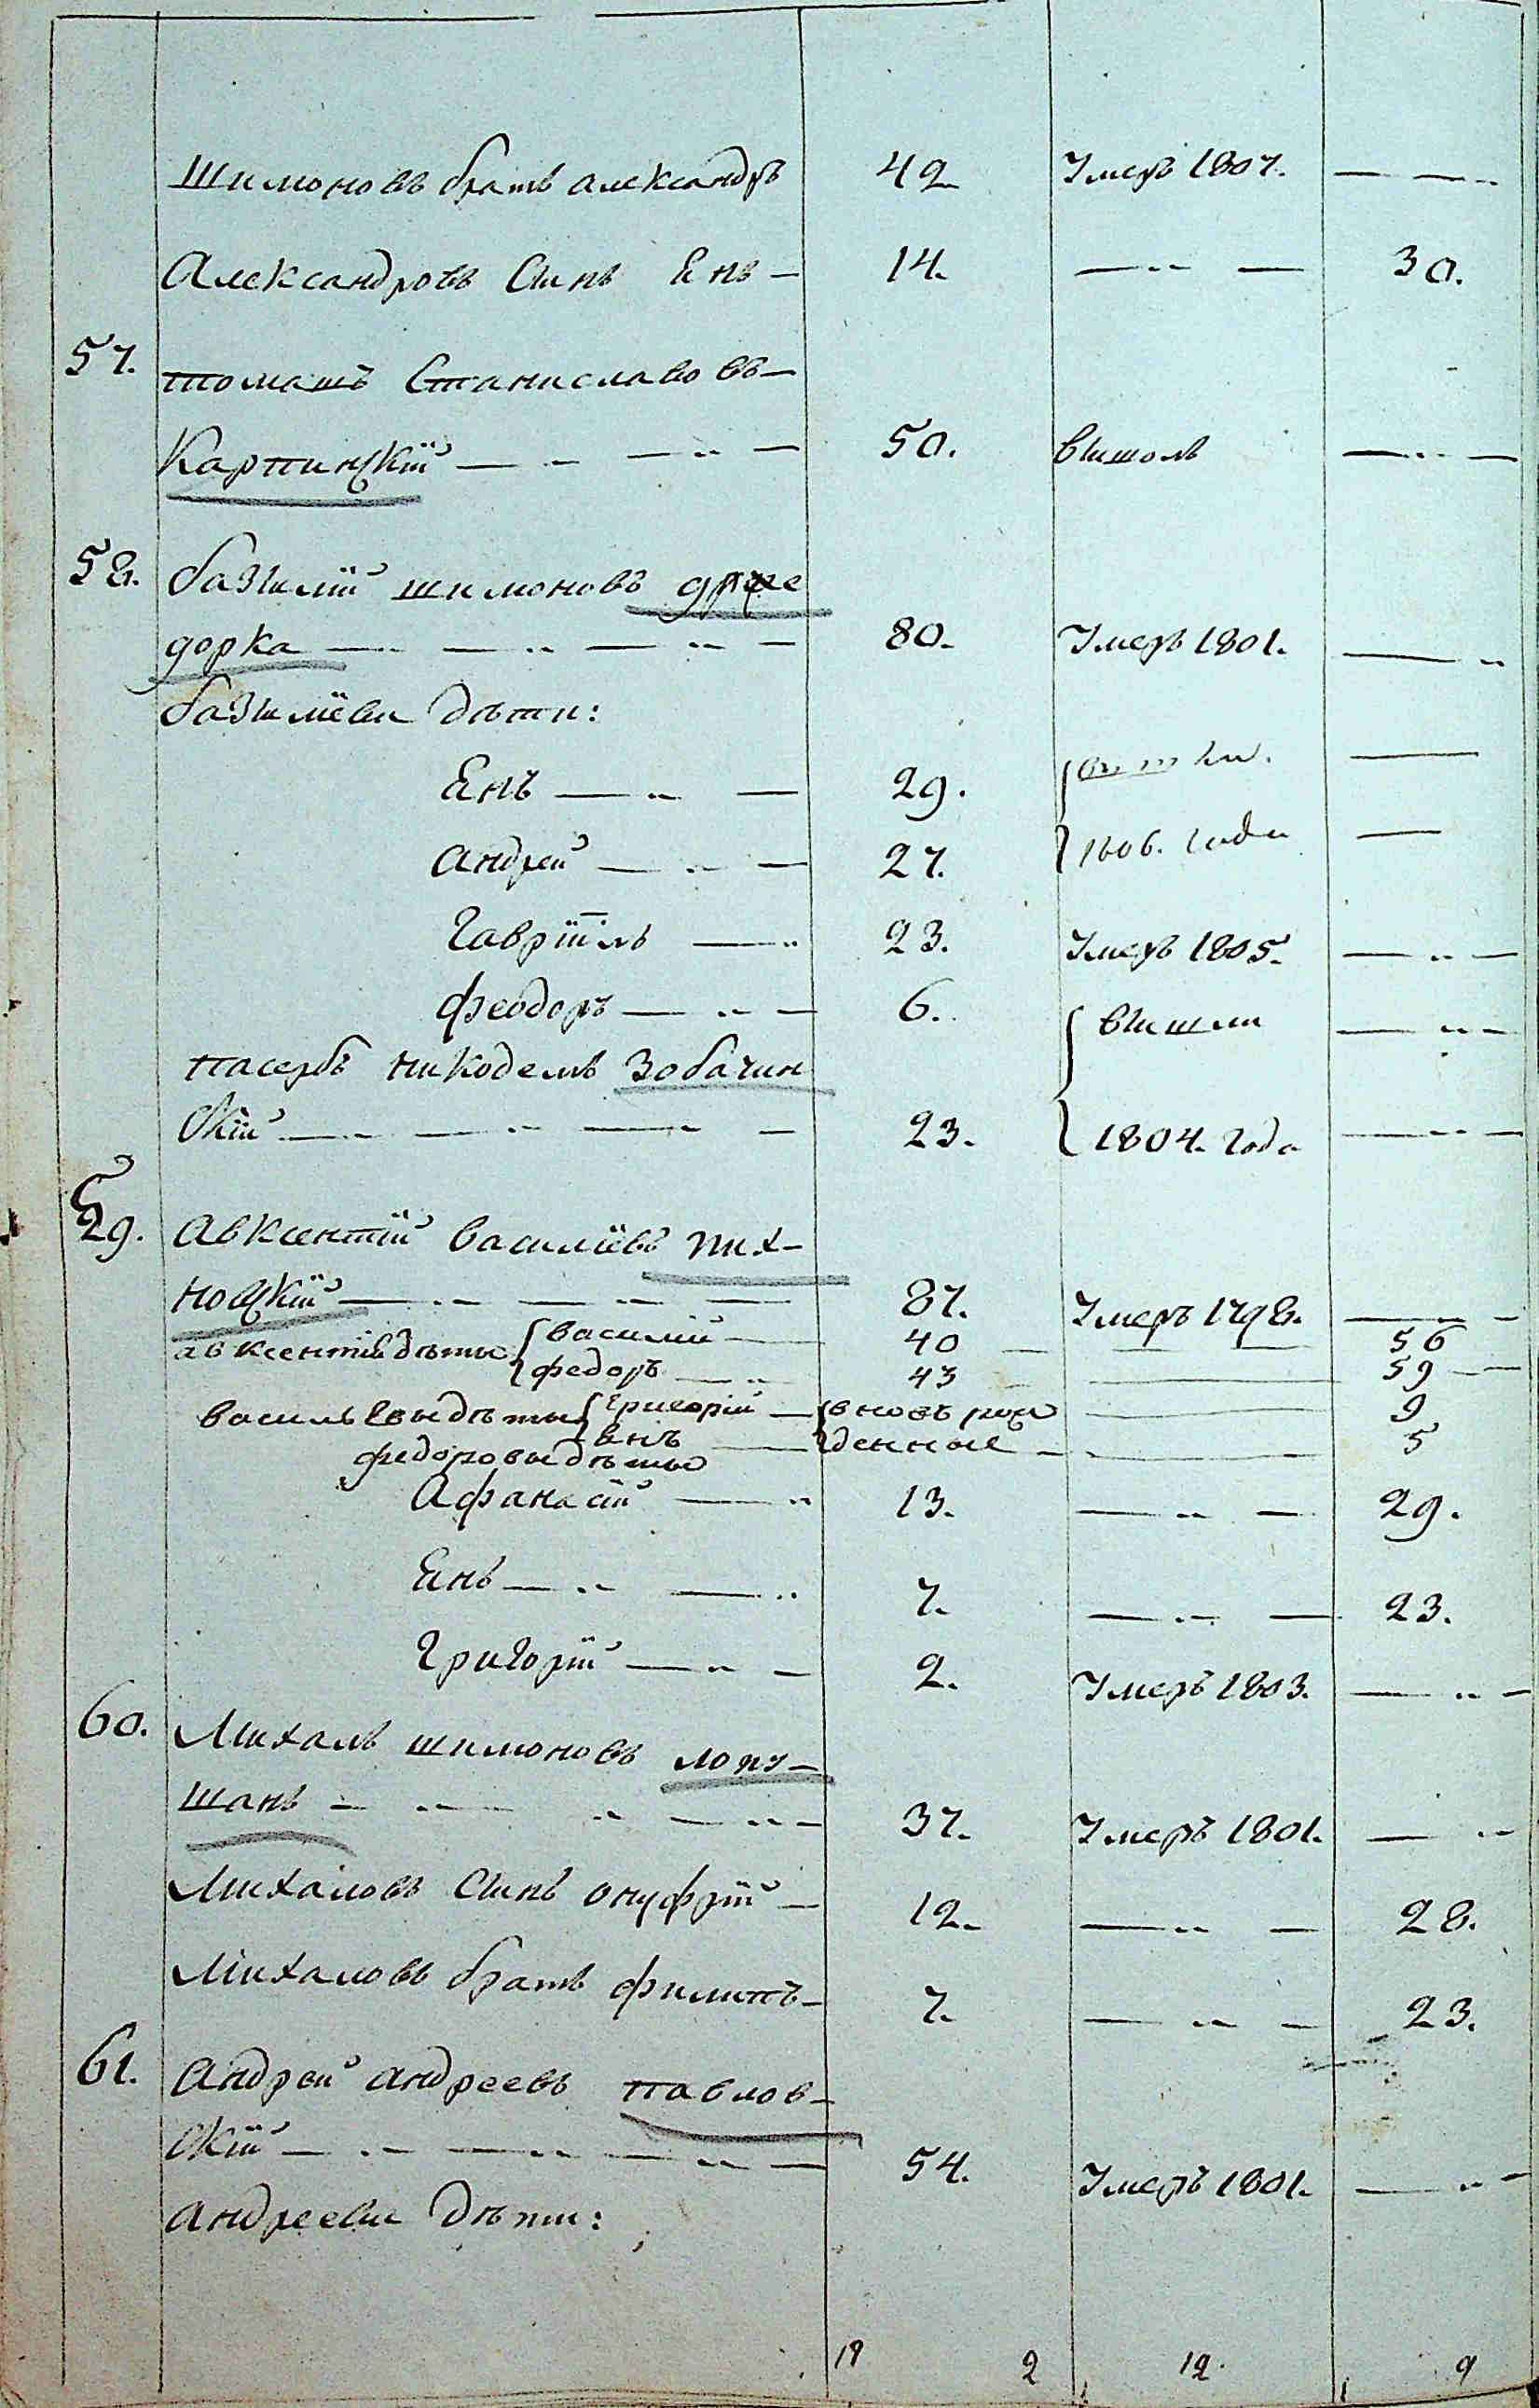 Шимоновъ братъ александръ 42 Умеръ 1807.
Александровъ Сынъ Янъ 14. 30.
57. томашъ Станиславовъ
Карпинскій 50. вышолъ
58. базылій шимоновъ
дорка 80. Умеръ 1801.
базылїевы дѣти:
Янъ 29.
андрей 27. 1806. года
Гавріилъ 23. Умеръ 1805.
феодоръ 6. вышли
пасербъ никодемъ Зобачин
скій 23. 1804. года
59. авксентій василїевъ пих-
новскій 87. Умеръ 1798.
авксентіевы дѣти василій 40 56
федоръ 43 59
васильевы дѣти григорій вновь рож 9
янъ денные 5
федоровы дѣти
Афанасій 13. 29.
Янъ 7. 23.
Григорій 2. Умеръ 1803.
60. Михалъ шимоновъ лопу-
шанъ 37. Умеръ 1801.
Михаловъ Сынъ онуфрій 12. 28.
Михаловъ братъ филипъ 7. 23.
61. андрей андреевъ павлов-
скій 54. Умеръ 1801.
андреевы дѣти:
19 2 12. 9